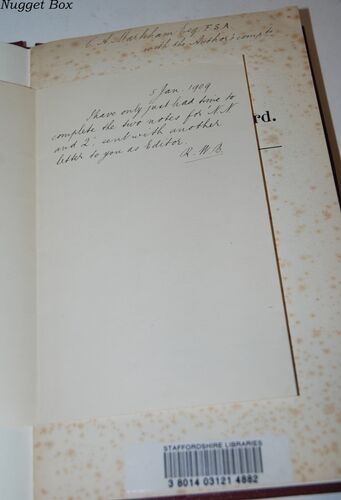 Nugget Box
C. A. Markham Esq FSA
with the Author's compts
5 Jan. 1909
I have only just had time to
complete the two notes for N.N
and 2 sent with another
letter to you as Editor.
R. W. B.
rd.
STAFFORDSHIRE LIBRARIES
3 8014 03121 4882